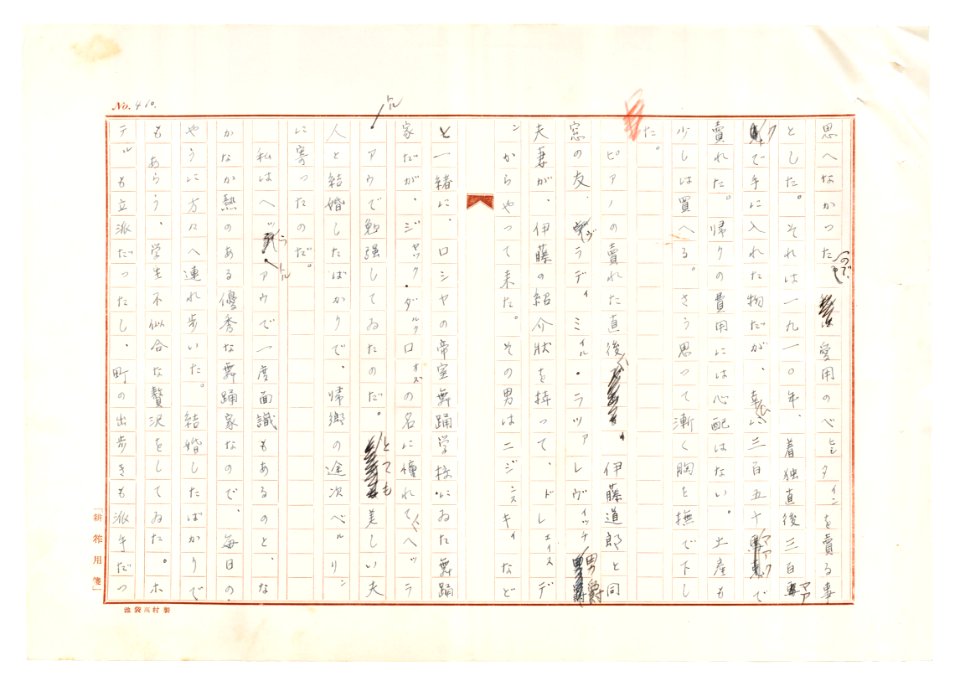 No. 410.
思へなかつたので、愛用のベヒシタインを賣る事
とした。それは一九一〇年、着独直後三百
で手に入れた物だが、幸ひに三百五十マアクで
賣れた。帰りの費用には心配はない。土産も
少しは買へる。さう思って漸く胸を撫で下し
た。
ピアノの賣れた直後、伊藤道郎と同
窓の友、ヴラディミイル・ラツアレヴィッチ男爵
夫妻が、伊藤の紹介状を持って、ドレエスデ
ンからやって来た。その男はニジンスキイなど
と一緒に、ロシヤの帝室舞踊学校にゐた舞踊
家だが、ジャック・ダルクロオズの名に憧れて、ヘッラ
アウで勉強してゐたのだ。とても美しい夫
人と結婚したばかりで、帰郷の途次ベルリン
に寄ったのだ。
私はヘッラアウで一度面識もあるのと、な
かなか熱のある優秀な舞踊家なので、毎日の
やうに方々へ連れ歩いた。結婚したばかりで
もあらう、学生不似合な贅沢をしてゐた。ホ
テルも立派だったし、町の出歩きも派手だつ
原稿用箋
池袋川村製